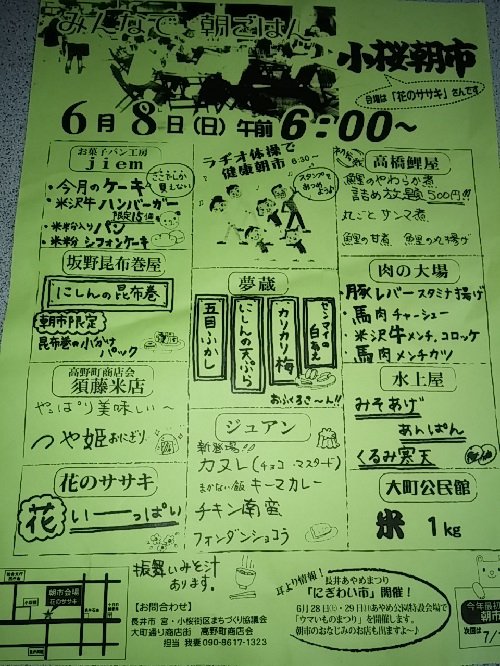 みんなで 朝ごはん
小桜朝市
会場は「花のササキ」さんです
6月8日(日)午前6:00〜
お菓子パン工房
jiem
・今月のケーキ
・米沢牛ハンバーガー
限定15個
・米粉入りパン
・米粉 シフォンケーキ
ラヂオ体操で
健康朝市
6:30〜
スタンプも
あつめよう
高橋鯉屋
鯉のやわらか煮
詰め放題500円!!
丸ごと サンマ煮
鯉の甘煮 鯉の丸揚げ
坂野昆布巻屋
にしんの昆布巻
朝市限定
昆布巻の小分け
パック
夢蔵
五目ふかし
にしんの天ぷら
カリカリ梅
ゼンマイの白あえ
おふくろさ〜ん!!
肉の大場
・豚レバースタミナ揚げ
・馬肉チャーシュー
・米沢牛メンチ、コロッケ
・馬肉メンチカツ
高野町商店会
須藤米店
やっぱり美味しい〜
つや姫おにぎり
ジュアン
新登場!!
カヌレ(チョコ・マスタード)
まかない飯 キーマカレー
チキン南蛮
フォンダンショコラ
水上屋
みそあげ
あんぱん
くるみ寒天
花のササキ
花いーっぱい
大町公民館
米 1kg
朝市会場
花のササキ
振舞いみそ汁
あります。
【お問合わせ】
長井市 宮・小桜街区まちづくり協議会
大町通り商店街 高野町商店会
担当 我妻 090-8617-1323
耳より情報!
長井あやめまつり
「にぎわい市」開催!
6月28日㊏・29日㊐あやめ公園特設会場で
「ウマいものまつり」を開催します。
朝市のおなじみのお店も出ますよ〜♪
今年最初
朝市
次回は7/